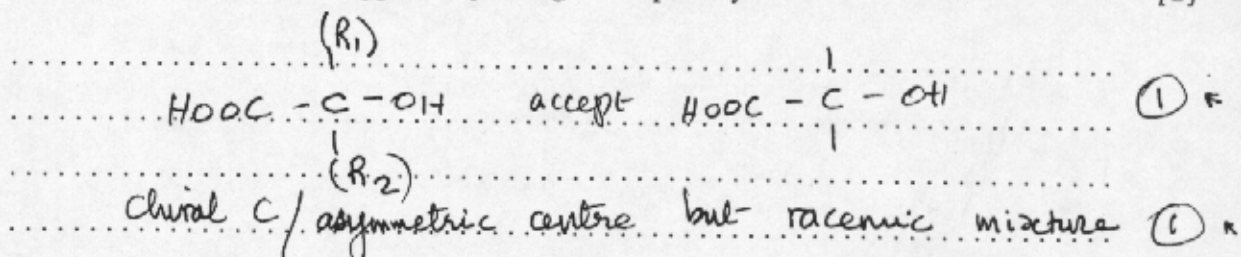 (R1)
HOOC - C - OH accept HOOC - C - OH 1
(R2)
Chiral C / asymmetric centre but racemic mixture 1